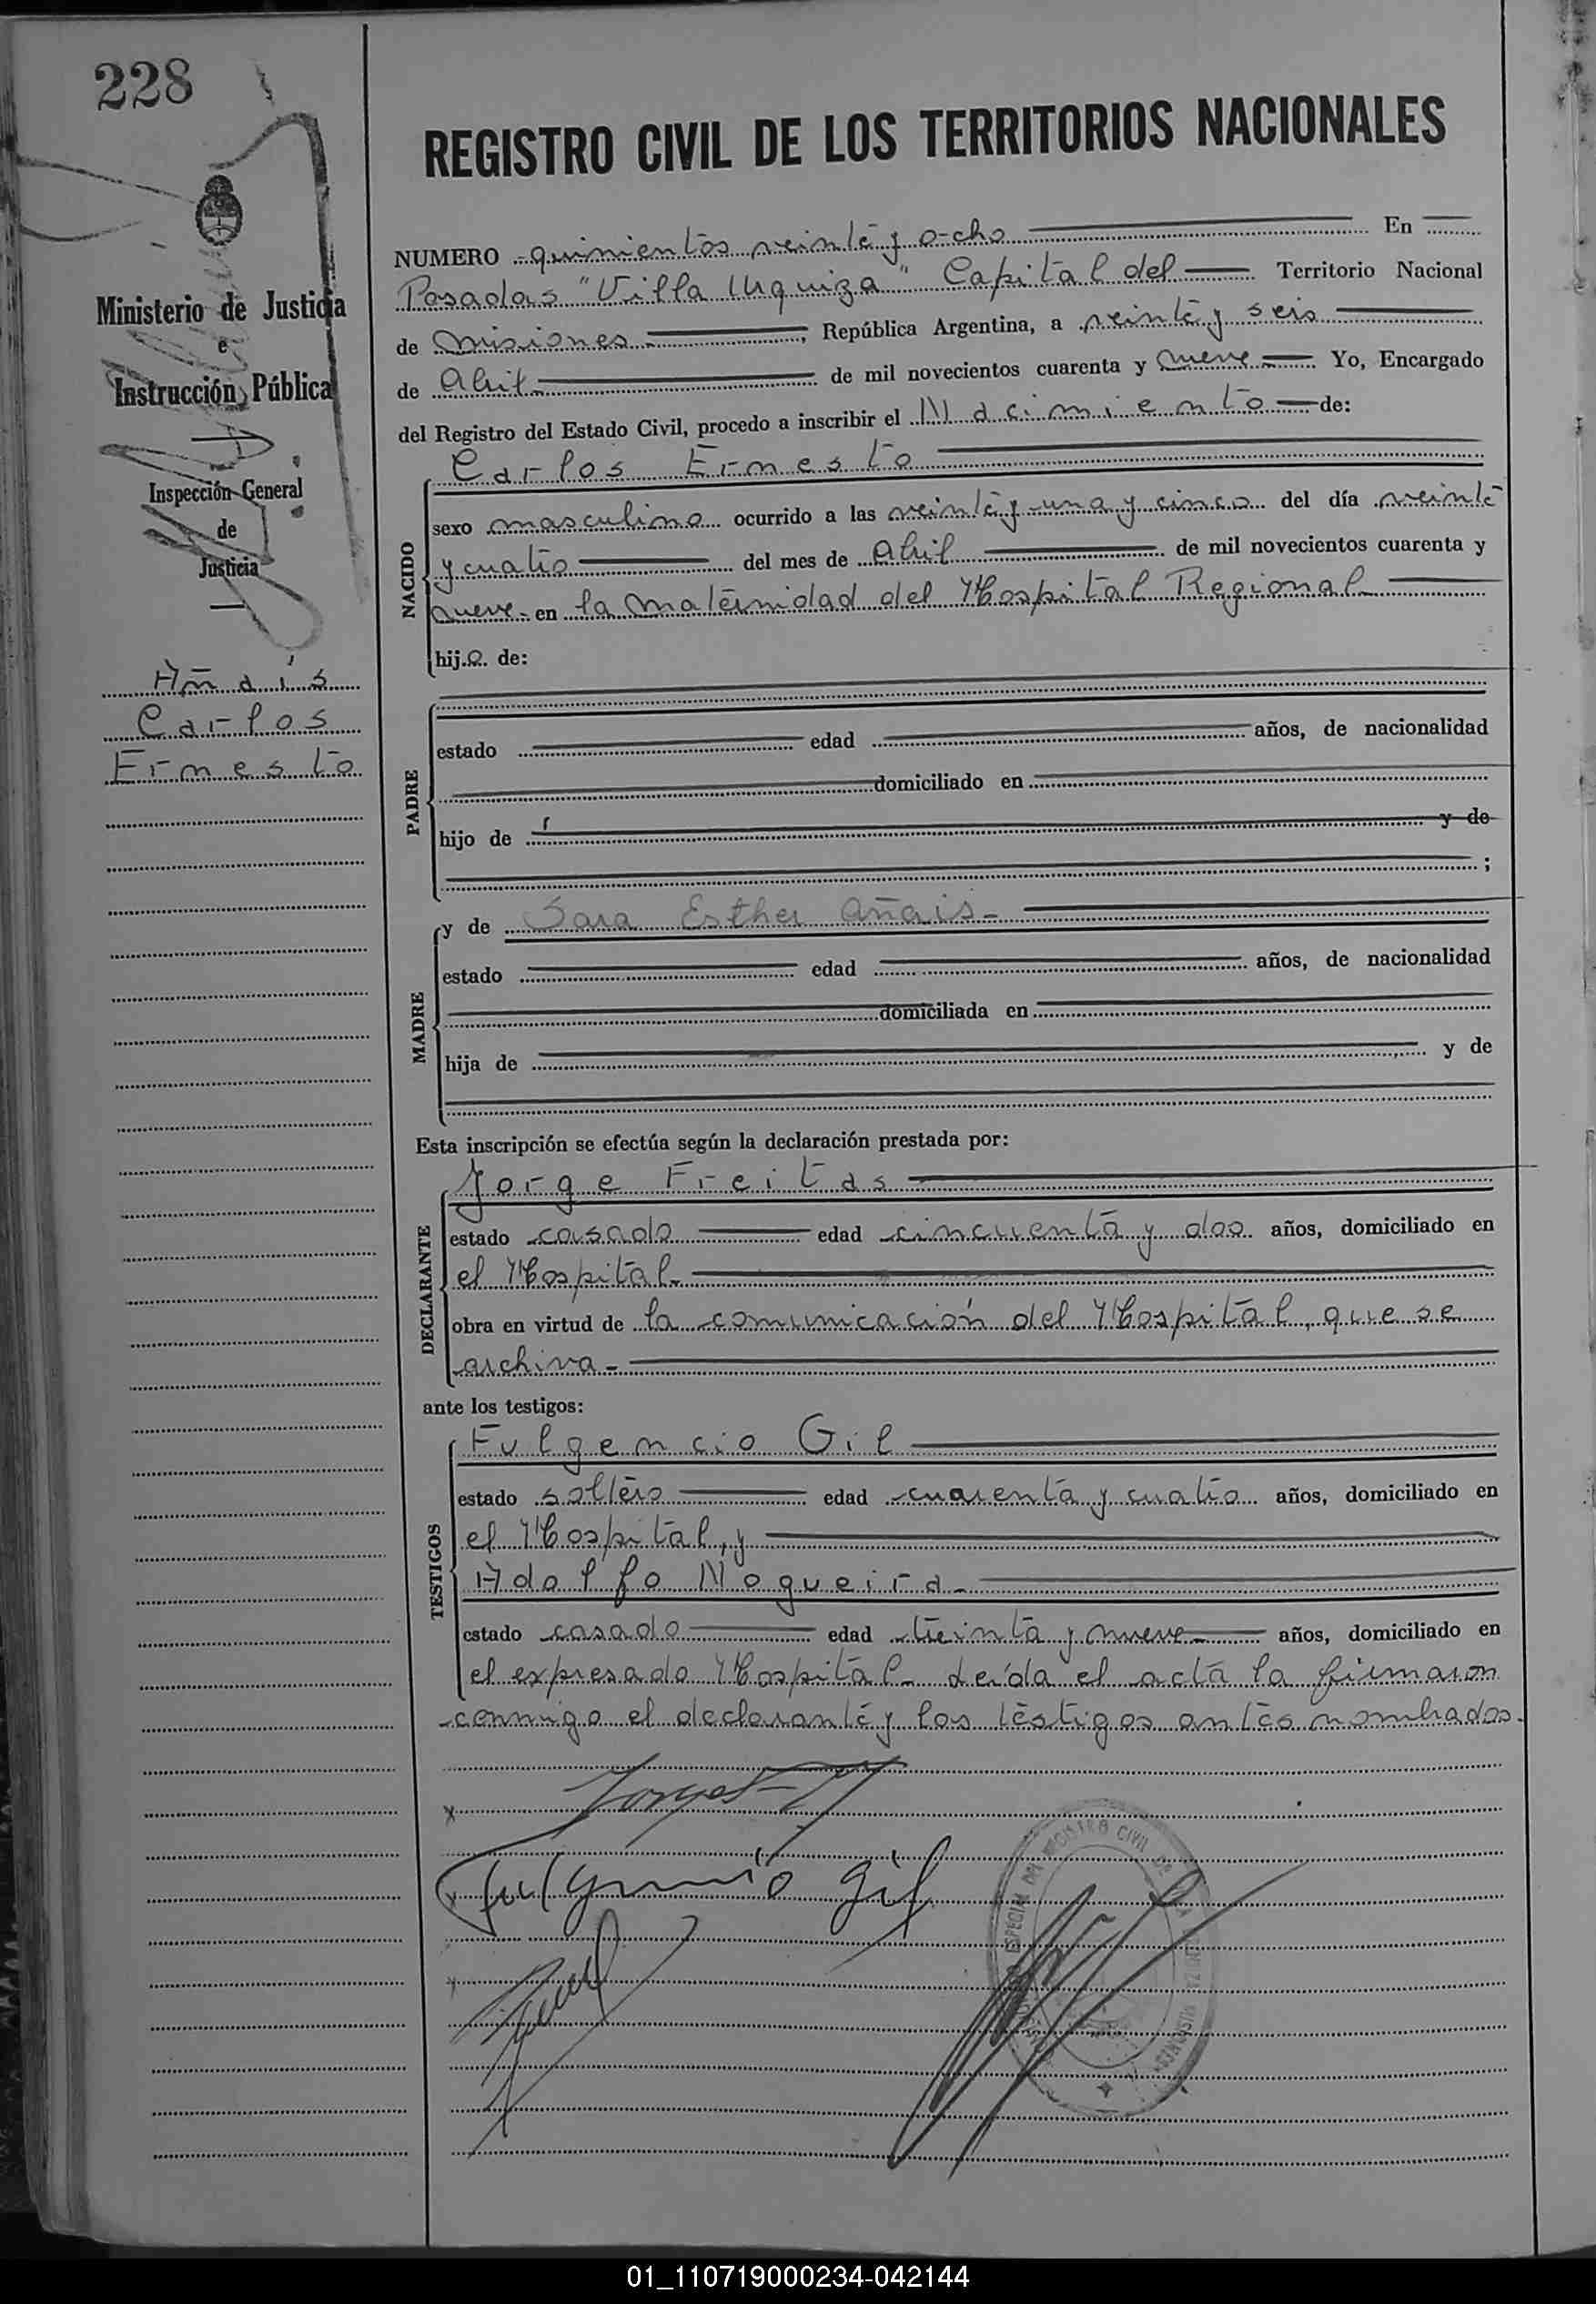 228
REGISTRO CIVIL DE LOS TERRITORIOS NACIONALES
NUMERO quinientos veinte y ocho En
Posadas "Villa Urquiza" Capital del Territorio Nacional
de Misiones, República Argentina, a veinte y seis
de Abril de mil novecientos cuarenta y nueve Yo, Encargado
del Registro del Estado Civil, procedo a inscribir el Nacimiento de:
Ministerio de Justicia
e
Instrucción Pública
Inspección General
de
Justicia
Añais
Carlos
Ernesto
NACIDO
Carlos Ernesto
sexo masculino ocurrido a las veinte y una y cinco del día veinte
y cuatro del mes de Abril de mil novecientos cuarenta y
nueve en la maternidad del Hospital Regional
hijo de:
PADRE
estado edad años, de nacionalidad
domiciliado en
hijo de y de
;
MADRE
y de Sara Esther Añais
estado edad años, de nacionalidad
domiciliada en
hija de y de
Esta inscripción se efectúa según la declaración prestada por:
DECLARANTE
Jorge Freitas
estado casado edad cincuenta y dos años, domiciliado en
el Hospital
obra en virtud de la comunicación del Hospital, que se
archiva
ante los testigos:
TESTIGOS
Fulgencio Gil
estado soltero edad cuarenta y cuatro años, domiciliado en
el Hospital, y
Adolfo Nogueira
estado casado edad treinta y nueve años, domiciliado en
el expresado Hospital. Leída el acta la firmaron
conmigo el declarante y los testigos antes nombrados.
Fulgencio Gil
01_110719000234-042144